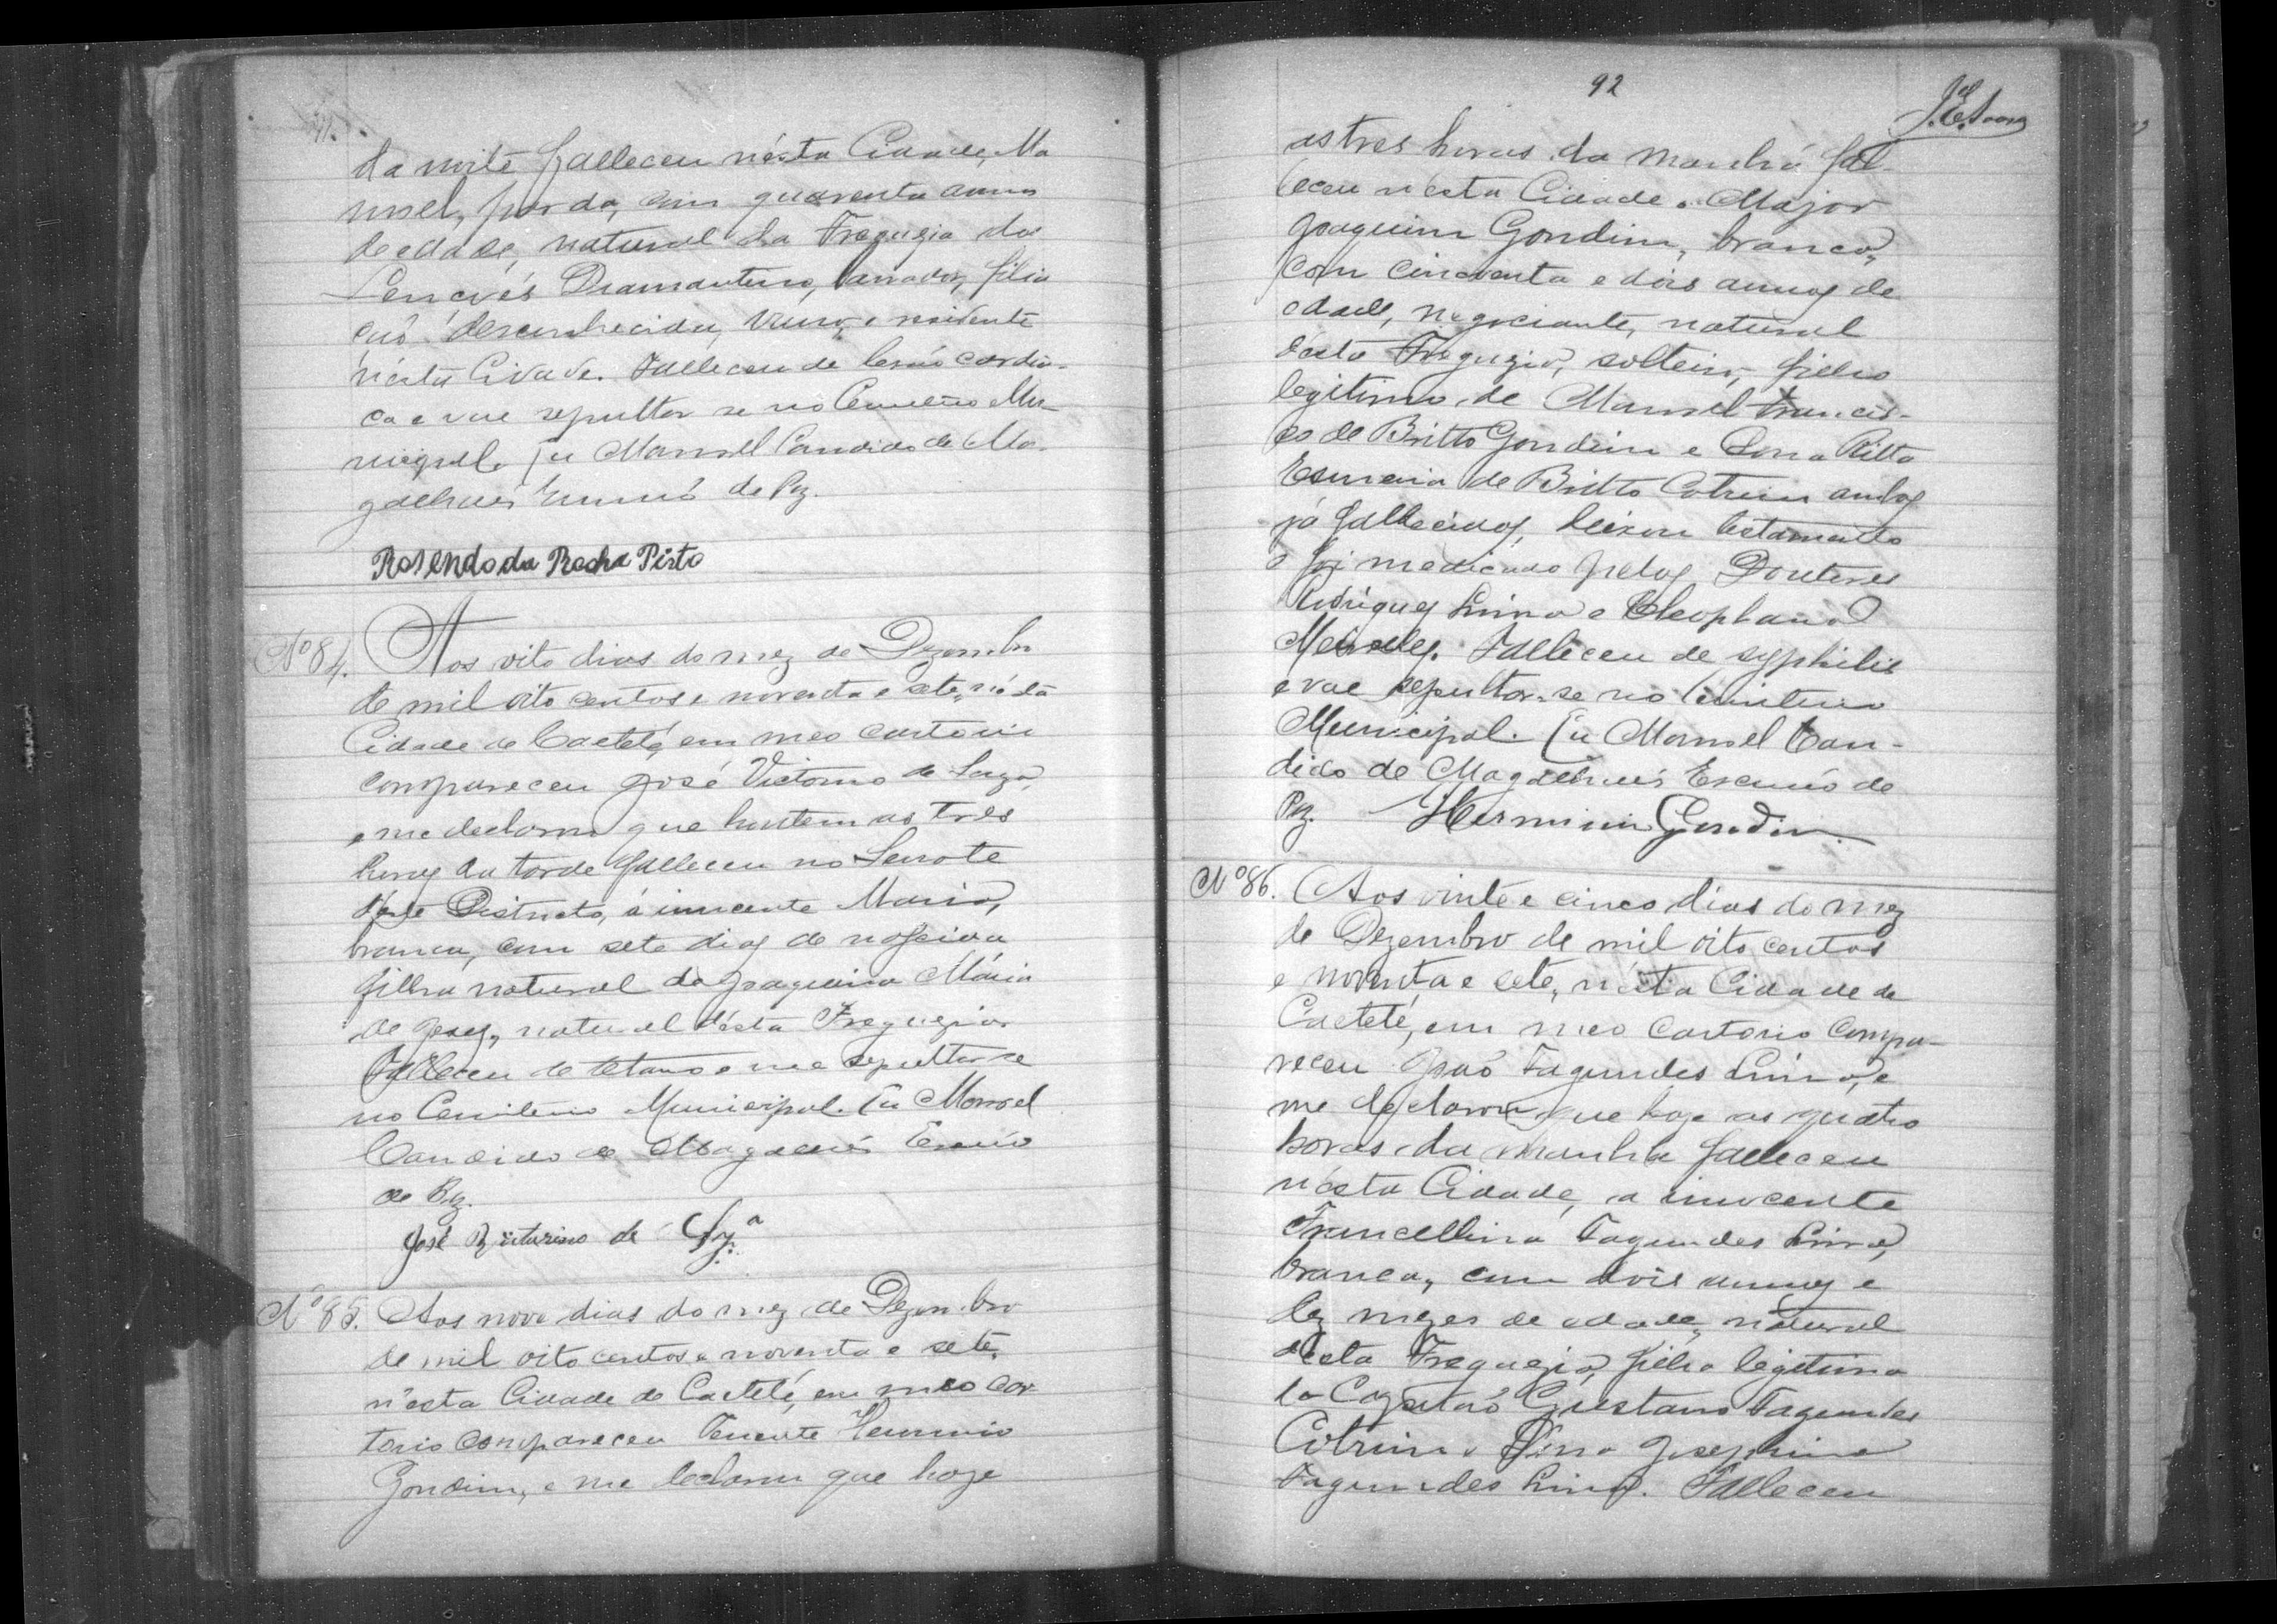 da noite falleceu n'ésta Cidade, Ma
noel, pardo, com quarenta annos
de edade, natural da Freguezia dos
Lençóes Diamantino, lavrador, filia
çaõ desconhecida, viuvo, e residente
n'ésta Cidade. Falleceu de lesaõ cardia-
ca e vae sepultar se no Cemiterio Mu-
nicipal. Eu Manoel Candido de Ma-
galhaes Escrivaõ de Paz.
Rosendo da Rocha Pinto
Nº 84. Aos oito dias do mez de Dezembro
de mil oito centos e noventa e sete, n'ésta
Cidade de Caeteté, em meo cartorio
compareceu José Victorino de Souza,
e me declarou que hontem as tres
horas da tarde falleceu no Serrote
d'este Districto, á innocente Maria,
branca, com sete dias de nascida
filha natural de Joaquina Maria
de Jesus, natural d'ésta Freguezia.
Falleceu de tetano e vae sepultar se
no Cemiterio Municipal. Eu Manoel
Candido de Magalhaes Escrivaõ
de Paz.
José Victurino de Sza
Nº 85. Aos nove dias do mez de Dezembro
de mil oito centos e noventa e sete,
n'ésta Cidade de Caeteté, em meo car
torio compareceu Tenente Herminio
Gondim, e me declarou que hoje
92
as tres horas da manhã fal-
leceu n'ésta Cidade o Major
Joaquim Gondim, branco,
com cincoenta e dois annos de
edade, negociante, natural
d'ésta Freguezia, solteiro, filho
legitimo de Manoel Francis-
co de Britto Gondim e Dona Ritta
de Britto Cotrim ambos
já fallecidos, deixou testamento
e foi medicado pelos Doutores
Rodrigues Lima e Cleophano
Meirelles. Falleceu de syphilis
e vae sepultar-se no Cemiterio
Municipal. Eu Manoel Can-
dido de Magalhaes Escrivaõ de
Paz. Herminio Gondim.
Nº 86. Aos vinte e cinco dias do mez
de Dezembro de mil oito centos
e noventa e sete, n'ésta Cidade de
Caeteté, em meo Cartorio compa-
receu Joaõ Fagundes Lima, e
me declarou que hoje as quatro
horas da manhã falleceu
n'ésta Cidade, a innocente
Francellina Fagundes Lima,
branca, com dois annos e
dez mezes de edade, natural
d'ésta Freguezia, filha legitima
do Capitaõ Gustavo Fagundes
Cotrim e Dona Josephina
Fagundes Lima. Falleceu